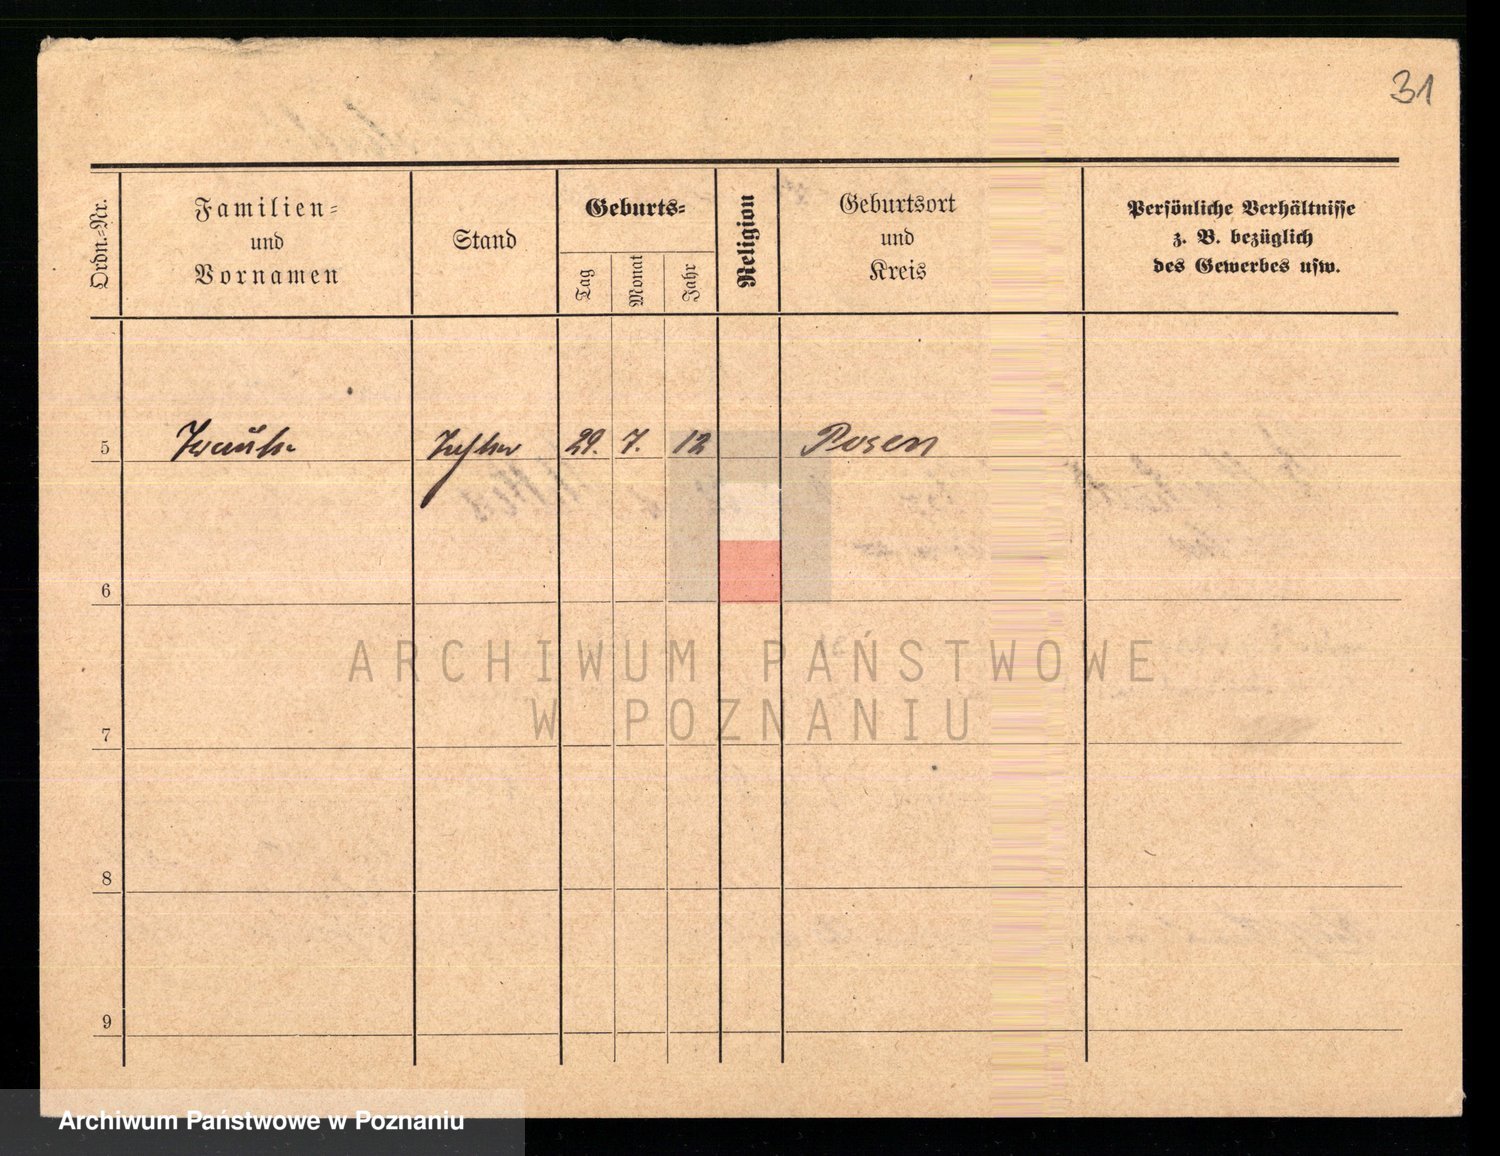 31
Ordn.=Nr.
Familien=
und
Vornamen
Stand
Geburts=
Tag
Monat
Jahr
Religion
Geburtsort
und
Kreis
Persönliche Verhältnisse
z. B. bezüglich
des Gewerbes usw.
5 29. 7. 12 Posen
6
ARCHIWUM PAŃSTWOWE
W POZNANIU
7
8
9
Archiwum Państwowe w Poznaniu